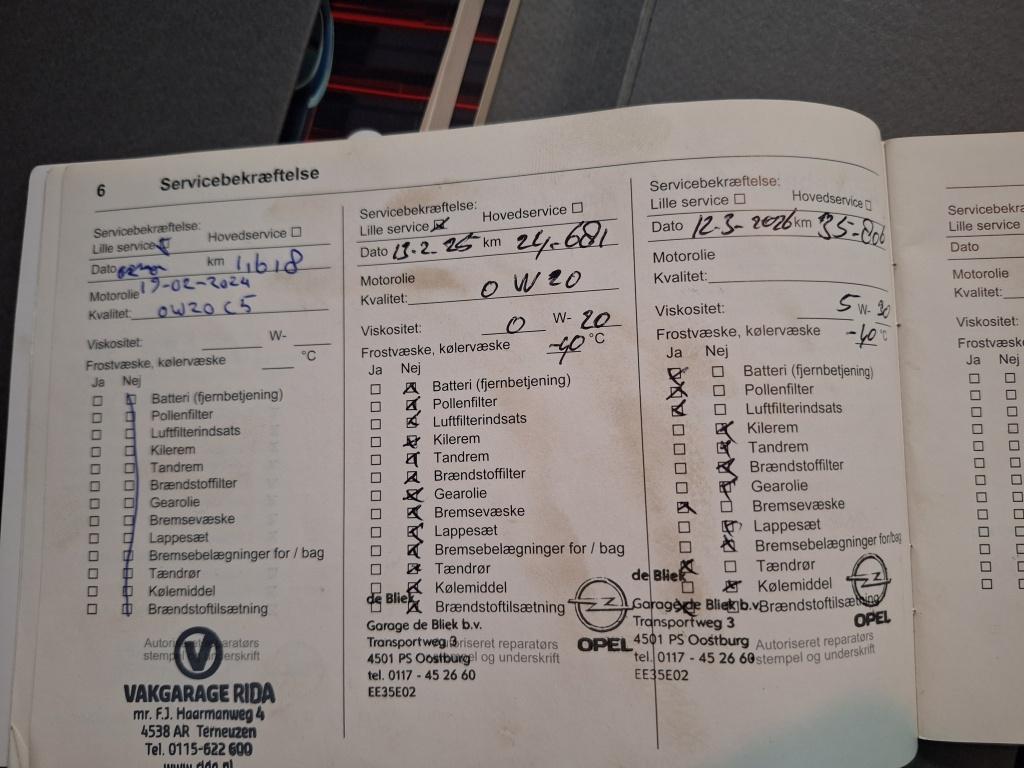 6 Servicebekræftelse
Servicebekræftelse:
Lille service ☑ Hovedservice ☐
Dato km 11618
19-02-2024
Motorolie
Kvalitet: 0W20 C5
Viskositet: W-
Frostvæske, kølervæske °C
Ja Nej
Batteri (fjernbetjening)
Pollenfilter
Luftfilterindsats
Kilerem
Tandrem
Brændstoffilter
Gearolie
Bremsevæske
Lappesæt
Bremsebelægninger for / bag
Tændrør
Kølemiddel
Brændstoftilsætning
Autoriseret reparatørs
stempel og underskrift
VAKGARAGE RIDA
mr. F.J. Haarmanweg 4
4538 AR Terneuzen
Tel. 0115-622 600
www.rida.nl
Servicebekræftelse:
Lille service ☒ Hovedservice ☐
Dato 13-2-25 km 24-681
Motorolie
Kvalitet: 0W20
Viskositet: 0 W- 20
Frostvæske, kølervæske -40 °C
Ja Nej
Batteri (fjernbetjening)
Pollenfilter
Luftfilterindsats
Kilerem
Tandrem
Brændstoffilter
Gearolie
Bremsevæske
Lappesæt
Bremsebelægninger for / bag
Tændrør
Kølemiddel
Brændstoftilsætning
de Bliek
Garage de Bliek b.v.
Transportweg 3
4501 PS Oostburg
tel. 0117 - 45 26 60
EE35E02
OPEL
Autoriseret reparatørs
stempel og underskrift
Servicebekræftelse:
Lille service ☐ Hovedservice ☐
Dato 12-3-2026 km 35-806
Motorolie
Kvalitet:
Viskositet: 5 W- 30
Frostvæske, kølervæske -40 °C
Ja Nej
Batteri (fjernbetjening)
Pollenfilter
Luftfilterindsats
Kilerem
Tandrem
Brændstoffilter
Gearolie
Bremsevæske
Lappesæt
Bremsebelægninger for/bag
Tændrør
Kølemiddel
Brændstoftilsætning
de Bliek
Garage de Bliek b.v.
Transportweg 3
4501 PS Oostburg
tel. 0117 - 45 26 60
EE35E02
OPEL
Autoriseret reparatørs
stempel og underskrift
Servicebekræ
Lille service
Dato
Motorolie
Kvalitet:
Viskositet:
Frostvæske
Ja Nej